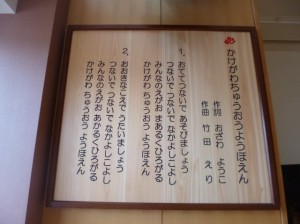 かけがわちゅうおうようほえん
作詞 おざわ ようこ
作曲 竹田 えり
1、おててつないで あそびましょう
つないで つないで なかよしこよし
みんなのえがお まあるくひろがる
かけがわ ちゅうおう ようほえん
2、おおきなこえで うたいましょう
つないで つないで なかよしこよし
みんなのえがお あかるくひろがる
かけがわ ちゅうおう ようほえん